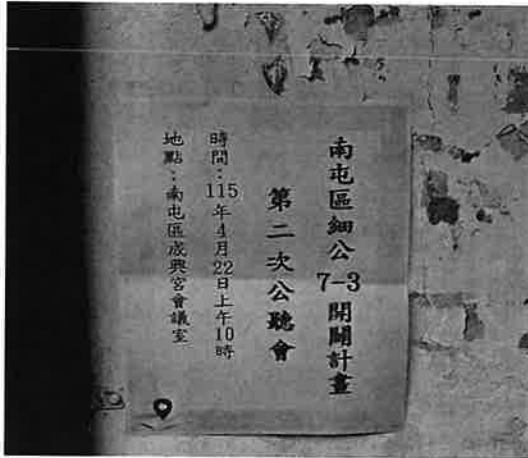 南屯區細公7-3開闢計畫
第二次公聽會
時間：115年4月22日上午10時
地點：南屯區咸興宮會議室